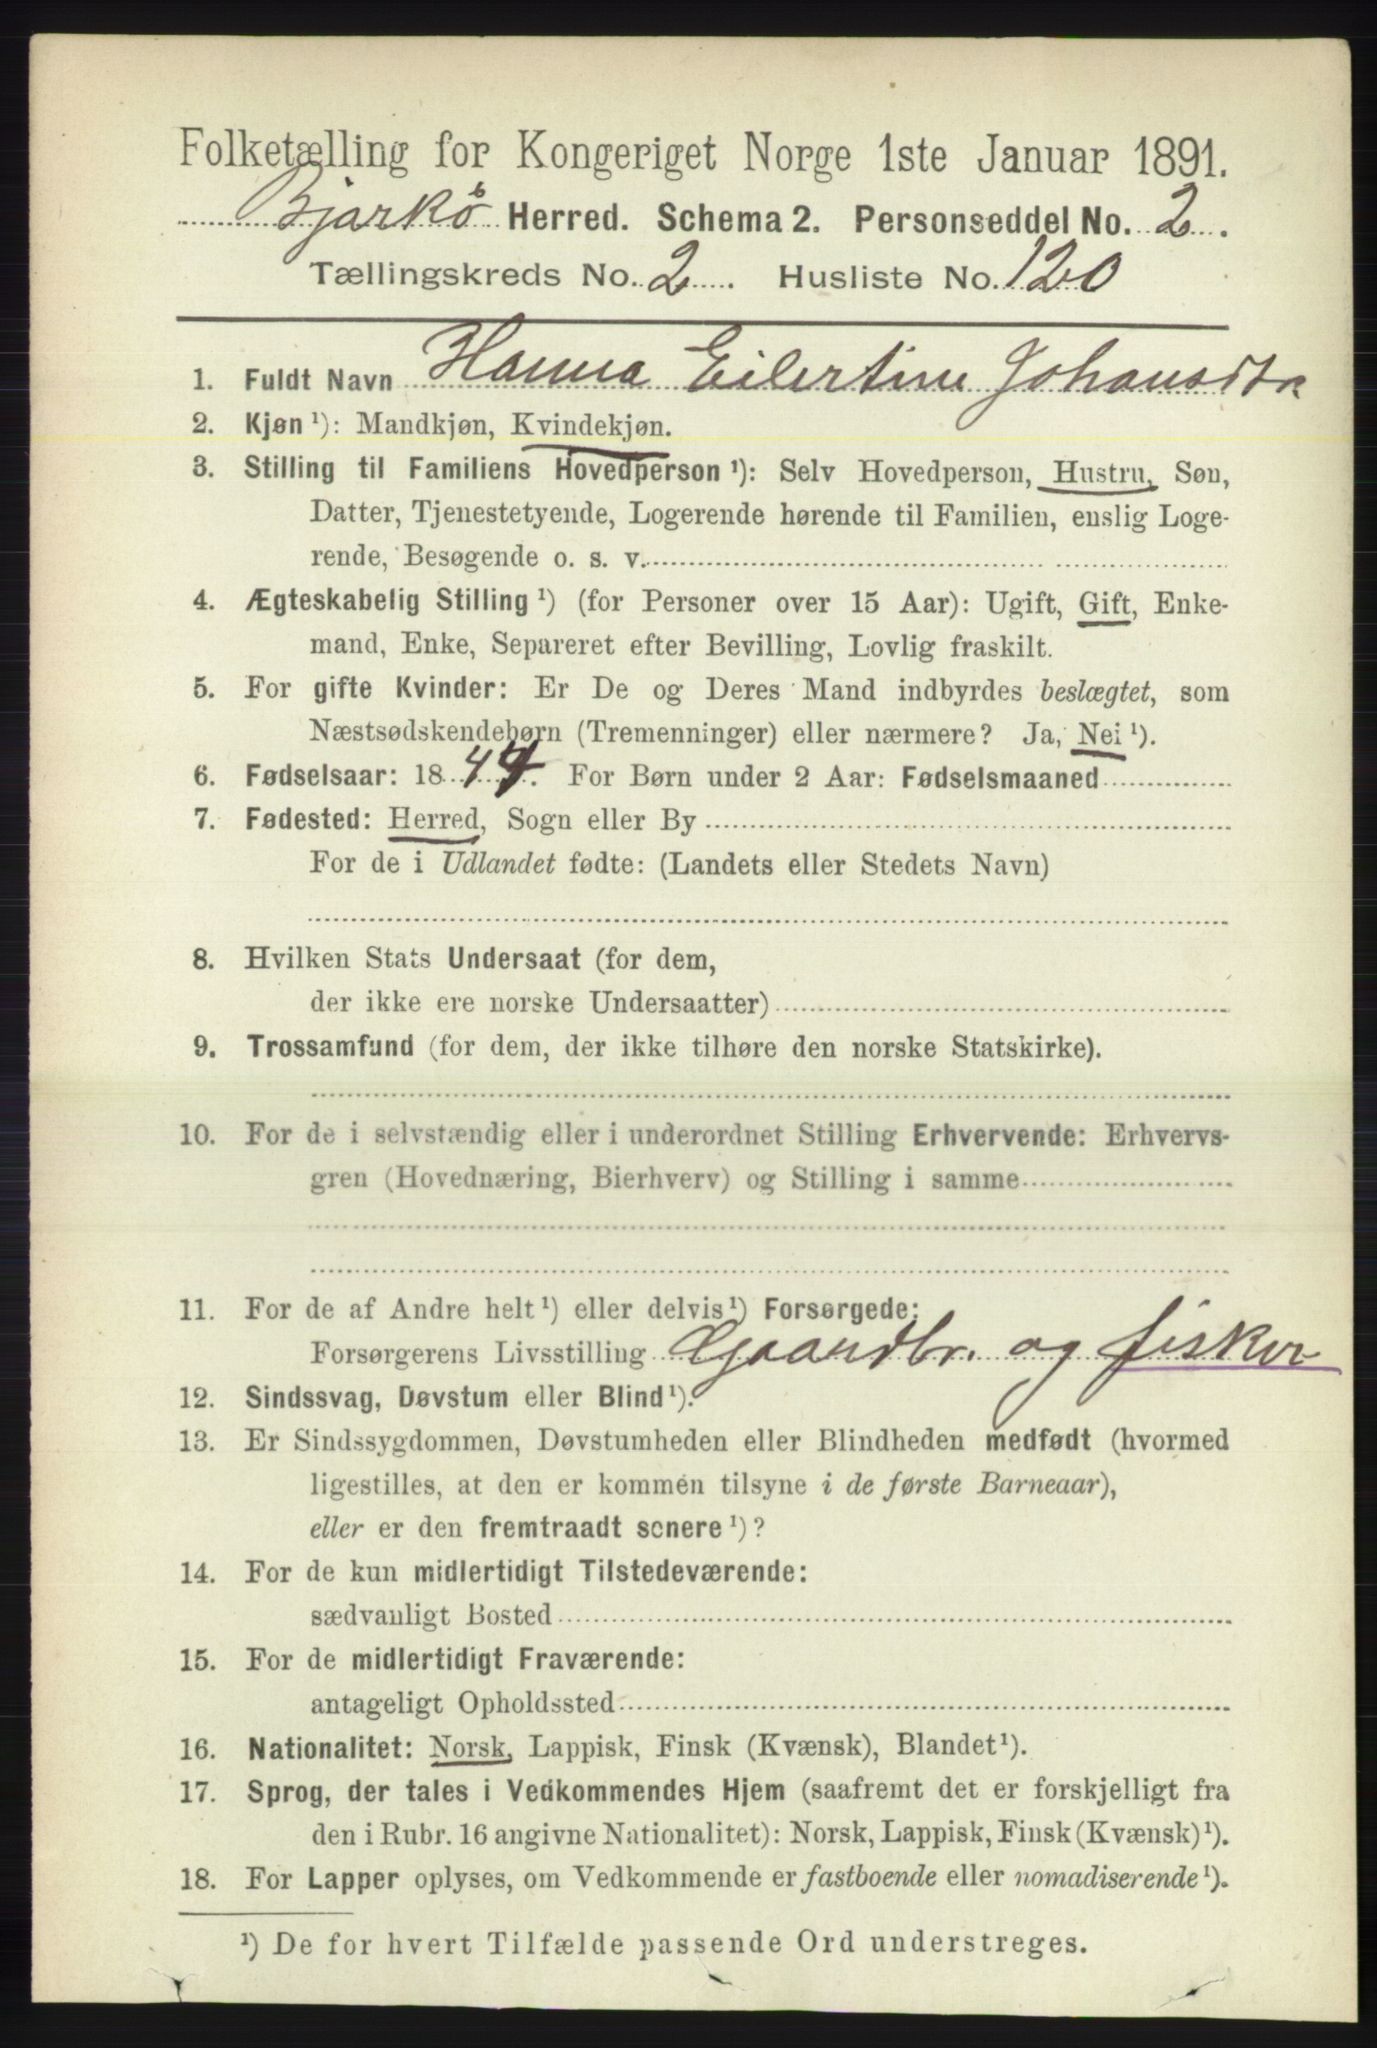 Folketælling for Kongeriget Norge 1ste Januar 1891.
Bjarkö Herred. Schema 2. Personseddel No. 2.
Tællingskreds No. 2. Husliste No. 120
1. Fuldt Navn Hanna Eilertine Johansdtr
2. Kjøn ¹): Mandkjøn, Kvindekjøn.
3. Stilling til Familiens Hovedperson ¹): Selv Hovedperson, Hustru, Søn,
Datter, Tjenestetyende, Logerende hørende til Familien, enslig Loge-
rende, Besøgende o. s. v.
4. Ægteskabelig Stilling ¹) (for Personer over 15 Aar): Ugift, Gift, Enke-
mand, Enke, Separeret efter Bevilling, Lovlig fraskilt.
5. For gifte Kvinder: Er De og Deres Mand indbyrdes beslægtet, som
Næstsødskendebørn (Tremenninger) eller nærmere? Ja, Nei ¹).
6. Fødselsaar: 1844. For Børn under 2 Aar: Fødselsmaaned
7. Fødested: Herred, Sogn eller By
For de i Udlandet fødte: (Landets eller Stedets Navn)
8. Hvilken Stats Undersaat (for dem,
der ikke ere norske Undersaatter)
9. Trossamfund (for dem, der ikke tilhøre den norske Statskirke).
10. For de i selvstændig eller i underordnet Stilling Erhvervende: Erhvervs-
gren (Hovednæring, Bierhverv) og Stilling i samme
11. For de af Andre helt ¹) eller delvis ¹) Forsørgede:
Forsørgerens Livsstilling Gaardbr. og fisker
12. Sindssvag, Døvstum eller Blind ¹).
13. Er Sindssygdommen, Døvstumheden eller Blindheden medfødt (hvormed
ligestilles, at den er kommen tilsyne i de første Barneaar),
eller er den fremtraadt senere ¹)?
14. For de kun midlertidigt Tilstedeværende:
sædvanligt Bosted
15. For de midlertidigt Fraværende:
antageligt Opholdssted
16. Nationalitet: Norsk, Lappisk, Finsk (Kvænsk), Blandet ¹).
17. Sprog, der tales i Vedkommendes Hjem (saafremt det er forskjelligt fra
den i Rubr. 16 angivne Nationalitet): Norsk, Lappisk, Finsk (Kvænsk) ¹).
18. For Lapper oplyses, om Vedkommende er fastboende eller nomadiserende ¹).
¹) De for hvert Tilfælde passende Ord understreges.